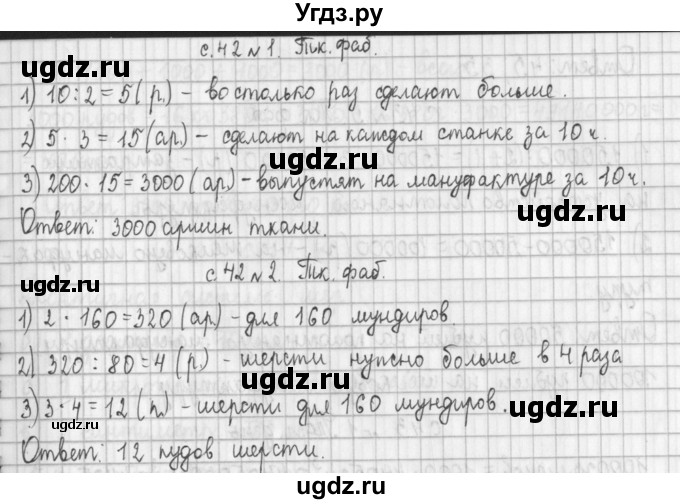 Угдз.ру
с. 42 № 1. Тк. фаб.
1) 10 : 2 = 5 (р.) – во столько раз сделают больше.
2) 5 · 3 = 15 (ар.) – сделают на каждом станке за 10 ч.
3) 200 · 15 = 3000 (ар.) – выпустят на мануфактуре за 10 ч.
Ответ: 3000 аршин ткани.
с. 42 № 2. Тк. фаб.
1) 2 · 160 = 320 (ар.) – для 160 мундиров.
2) 320 : 80 = 4 (р.) – шерсти нужно больше в 4 раза
3) 3 · 4 = 12 (п.) – шерсти для 160 мундиров.
Ответ: 12 пудов шерсти.
ugdz.ru
ugdz.ru
ugdz.ru
ugdz.ru
ugdz.ru
ugdz.ru
ugdz.ru
ugdz.ru
ugdz.ru
ugdz.ru
ugdz.ru
ugdz.ru
ugdz.ru